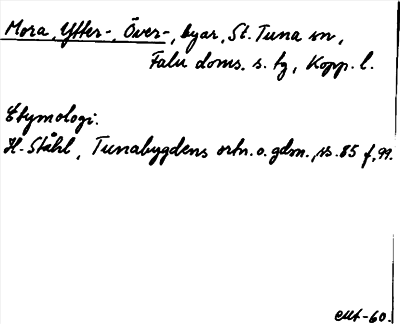 Mora, Ytter-, Över-, byar, St. Tuna sn,
Falu doms. s. tg, Kopp. l.
Etymologi.
H. Ståhl, Tunabygdens ortn. o. gdsn., s. 85 f, 99.
-60.